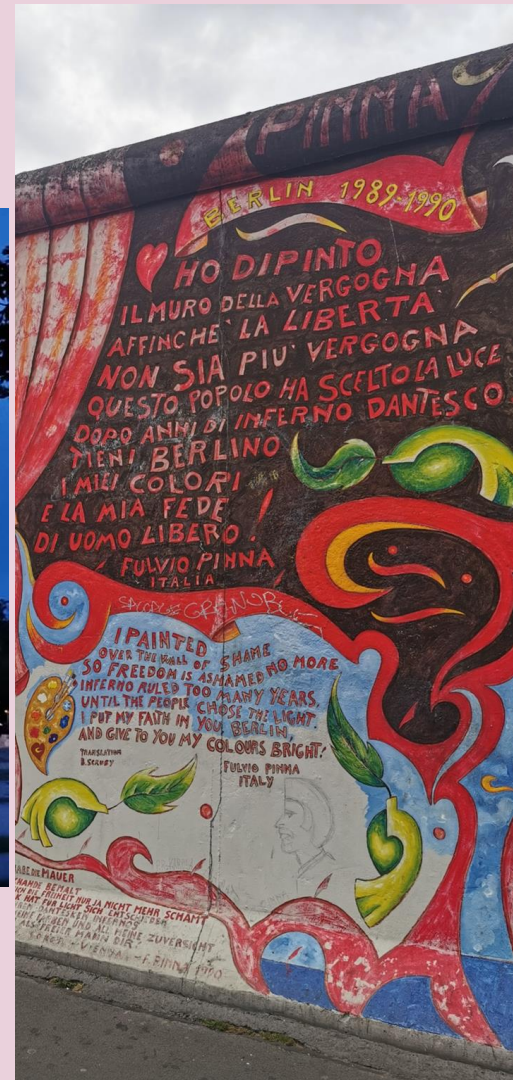 PINNA
BERLIN 1989-1990
HO DIPINTO
IL MURO DELLA VERGOGNA
AFFINCHE' LA LIBERTA'
NON SIA PIU' VERGOGNA
QUESTO POPOLO HA SCELTO LA LUCE
DOPO ANNI DI INFERNO DANTESCO.
TIENI BERLINO
I MIEI COLORI
E LA MIA FEDE
DI UOMO LIBERO!
FULVIO PINNA
ITALIA
I PAINTED
OVER THE WALL OF SHAME
SO FREEDOM IS ASHAMED NO MORE
INFERNO RULED TOO MANY YEARS,
UNTIL THE PEOPLE CHOSE THE LIGHT.
I PUT MY FAITH IN YOU, BERLIN,
AND GIVE TO YOU MY COLOURS BRIGHT!
TRANSLATION
FULVIO PINNA
ITALY
DIE MAUER
BEMALT
DIE FREIHEIT NUR JA NICHT MEHR SCHÄMT
HAT FÜR LICHT SICH
DANTESKEN INFERNOS
UND ALL MEINE ZUVERSICHT
ALS FREIER MANN DIR.
F. PINNA 1990